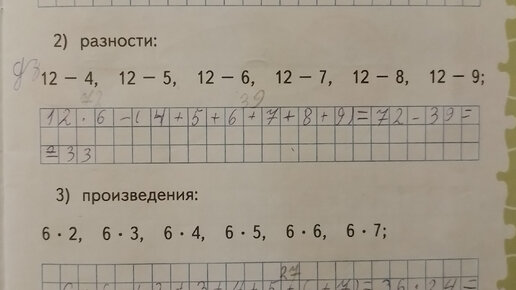 2) разности:
ДЗ 12 − 4, 12 − 5, 12 − 6, 12 − 7, 12 − 8, 12 − 9;
72 39
12 · 6 − (4 + 5 + 6 + 7 + 8 + 9) = 72 − 39 =
= 33
3) произведения:
6 · 2, 6 · 3, 6 · 4, 6 · 5, 6 · 6, 6 · 7;
27